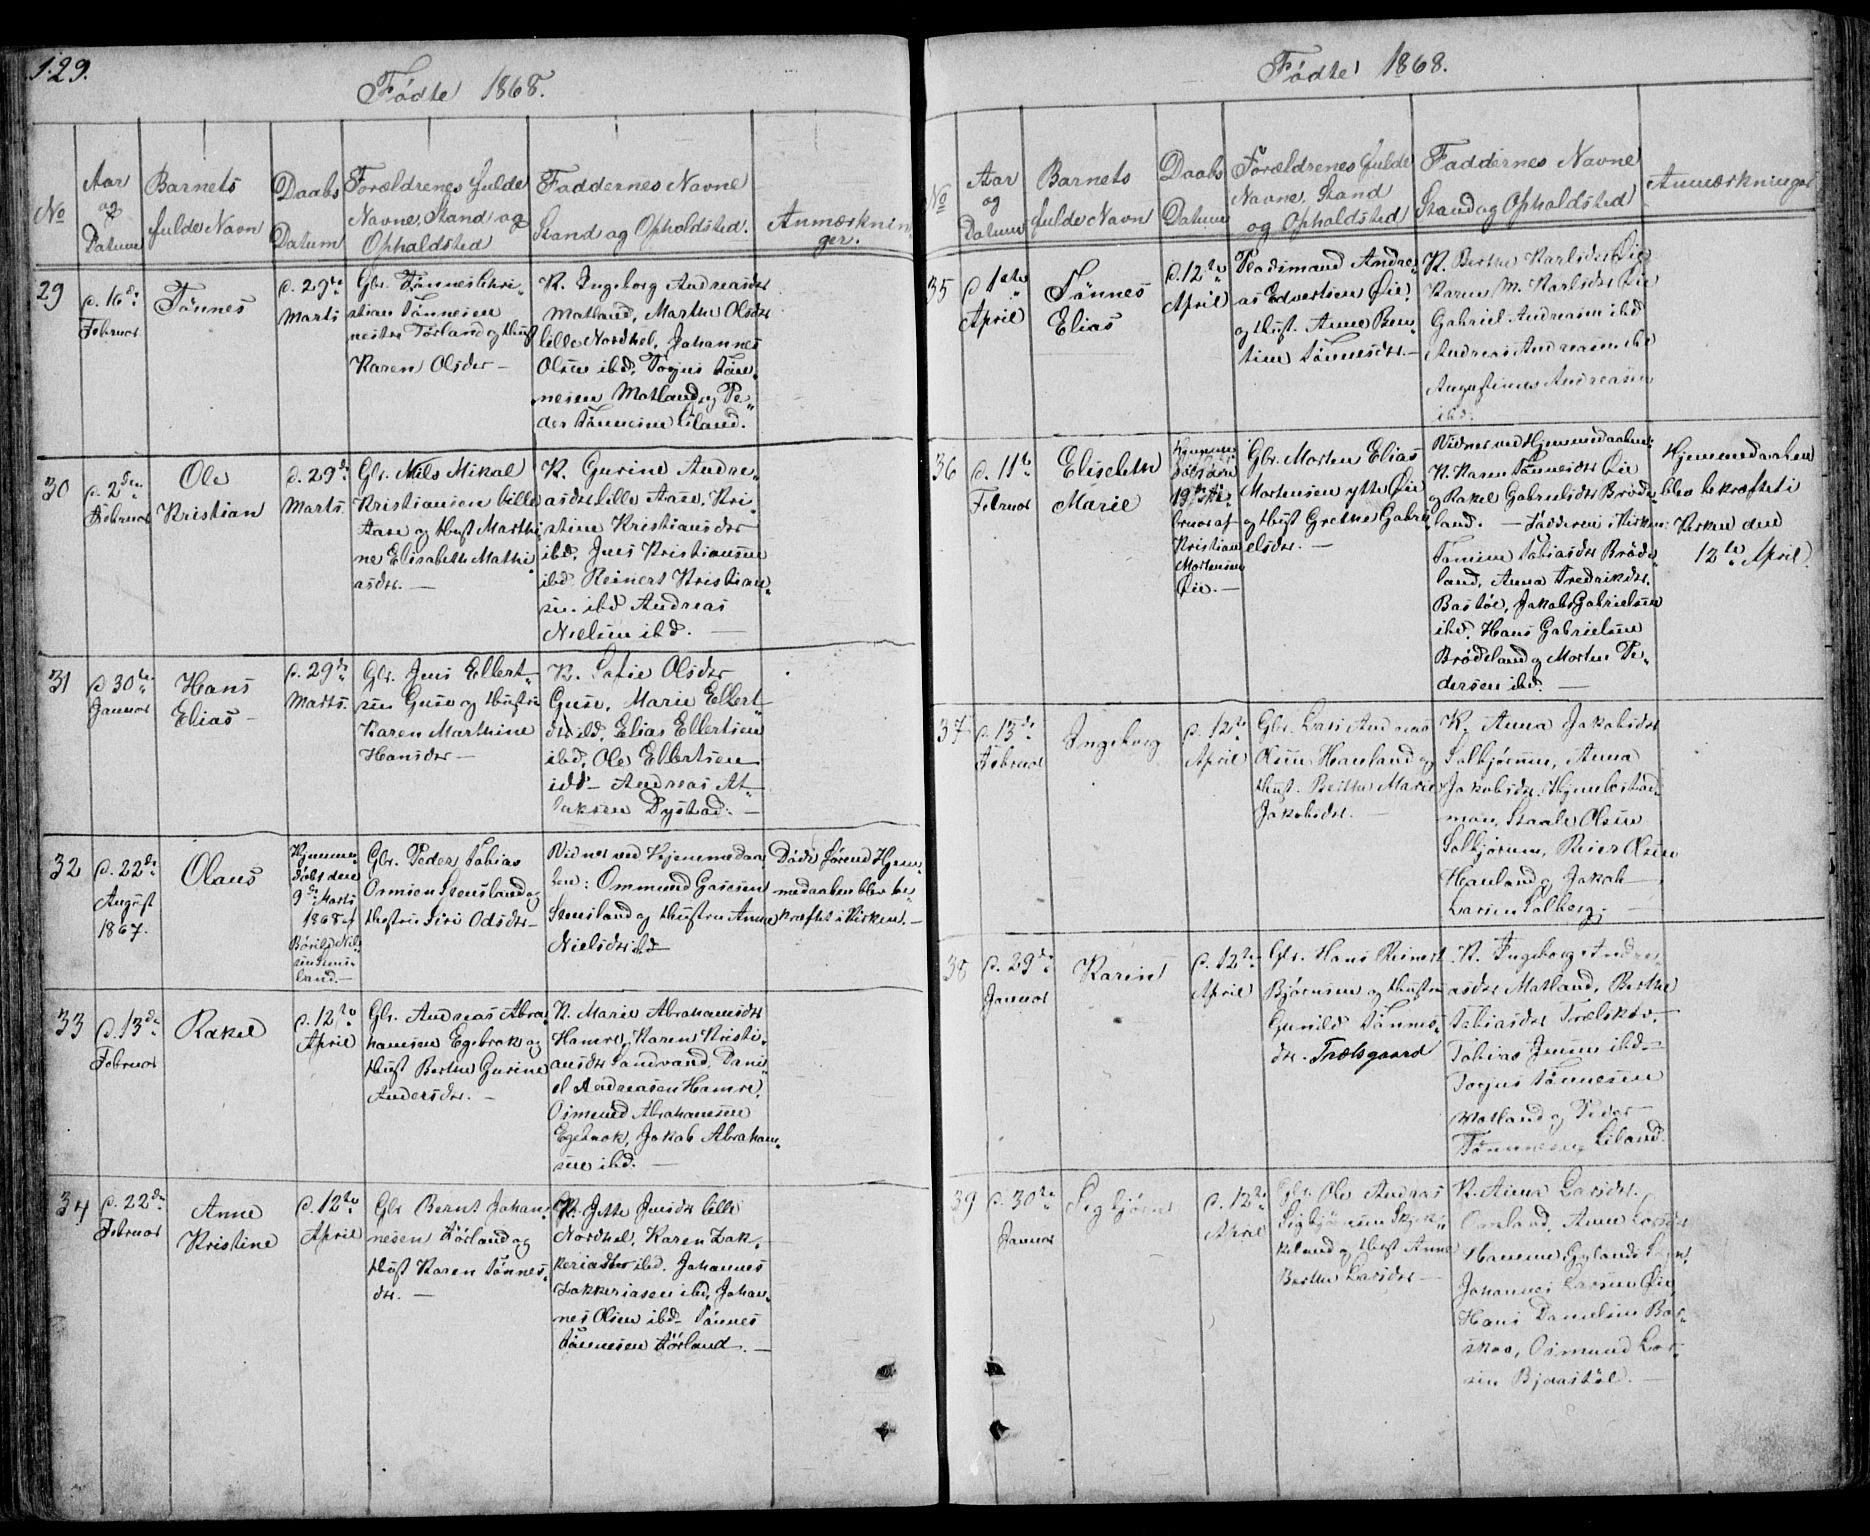 129.
Fødte 1868.
No
Aar
og
Datum
Barnets
fulde Navn
Daabs
Datum
Forældrenes fulde
Navne, Stand og
Opholdsted
Faddernes Navne
Stand og Opholdsted.
Anmærknin-
ger.
29
d. 16de
Februar
Tønnes
d. 29de
Marts
Gbr. Tønnes Chri-
stian Tønnesen
Tørland og Hust
Karen Olsdtr —
K. Ingeborg Andreasdtr
Matland, Marthe Olsdtr
lille Nordhel, Johannes
Olsen ibd, Torjus Tøn-
nesen Matland og Pe-
der Tønnesen Liland.
30
d. 2den
Februar
Ole
Kristian
d. 29de
Marts.
Gbr. Nils Mikal
Kristiansen lille
Aase og Hust Marthi
ne Elisabeth Mathi
asdtr. —
K. Gurine Andre-
asdtr lille Aase, Kri-
stine Kristiansdtr
ibd, Jens Kristiansen
ibd Reinert Kristian-
sen ibd Andreas
Nielsen ibd. —
31
d 30te
Januar
Hans
Elias —
d. 29de
Marts.
Gbr. Jens Ellert-
sen Guse og Hustru
Karen Marthine
Hansdtr —
K. Sofie Olsdtr
Guse, Marie Ellert-
dtr ibd, Elias Ellertsen
ibd, Ole Ellertsen
ibd — Andreas At-
laksen Dystad. —
32
d. 22de
August
1867.
Olaus
Hjemme-
døbt den
9de Marts
1868 af
Børild Nil-
sen
land. —
Gbr. Peder Tobias
Omsen Stensland og
Hustru Siri Odsdtr —
Vidner ved Hjemmedaa-
ben: Ommund Gasesen
Stensland og Hustru Anna
Nielsdtr ibd —
Døde førend Hjem-
medaaben blev be-
kræftet i Kirken. —
33
d. 13de
Februar
Rakel
d. 12te
April
Gbr. Andreas Abra-
hamsen Egebrok og
Hust Berthe Gurine
Andersdtr. —
K. Marie Abrahamsdtr
Hamre, Karen Kristi-
ansdtr Sandvand, Dani-
el Andreasen Hamre,
Osmund Abrahamsen
Egebrok, Jakob Abraham-
sen ibd. —
34
d. 22de
Februar
Anne
Kristine
d. 12te
April
Gbr Bernt Johan-
nesen Tørland og
Hust Karen Tønnes-
dtr. —
K. Jette Jensdtr lille
Nordhel, Karen Zak-
keriasdtr ibd. Johannes
Zakkeriasen ibd, Johan-
nes Olsen ibd — Tønnes
Tønnesen Tørland. —
Fødte 1868.
No
Aar
og
Datum
Barnets
fulde Navn
Daabs
Datum
Forældrenes fulde
Navne, Stand
og Opholdsted
Faddernes Navne
Stand og Opholdsted
Anmærkninger
35
d 1ste
April
Tønnes
Elias
d. 12te
April
Pladsmand Andre-
as Edvertsen Øie
og Hust. Anne Ben-
tine Tønnesdtr. —
K. Berthe Karlsdtr Øie
Karen M. Karlsdtr Øie
Gabriel Andreasen ibd
Andreas Andreasen ibd
Augustinus Andreasen
ibd.
36
d. 11te
Februar
Elisabeth
Marie
Hjemme-
døbt den
19de Fe-
bruar af
Kristian
Mortensen
Øie. —
Gbr. Morten Elias
Mortensen ytte Øie
og Hust Grethe Gabri
elsdtr. —
Vidner ved Hjemmedaaben:
K. Karen Tønnesdtr Øie
og Rakel Gabrielsdtr Brøde-
land. — Fadderne i Kirken:
Tomine Tobiasdtr Brøde-
land, Anna Fredriksdtr.
Bastøl, Jakob Gabrielsen
ibd. Hans Gabrielsen
Brødeland og Morten Pe-
dersen ibd. —
Hjemmedaaben
blev bekræftet i
Kirken den
12te April.
37
d. 13de
Februar
Ingeborg
d. 12te
April
Gbr. Lars Andreas
Olsen Hauland og
Hust. Berthe Marie
Jakobsdtr. —
K. Anna Jakobsdtr
Solbjørnen, Anna
Jakobsdtr. Hjembostad-
mon, Staale Olsen
Solbjørnen, Reier Olsen
Hauland og Jakob
Larsen Solberg. —
38
d. 29de
Januar
Karin
d. 12te
April
Gbr. Hans Reinert
Bjørnsen og Hustru
Gunild Tønnes-
dtr. Trælsgaard
K. Ingeborg Andre-
asdtr Matland, Berthe
Tobiasdtr Trælskov,
Tobias Jensen ibd —
Torjus Tønnesen
Matland og Peder —
Tønnesen Liland.
39
d. 30te
Januar
Sigbjørn
d. 12te
April
Gbr. Ole Andreas
Sigbjørnsen Skjek-
keland og Hust Anne
Berthe Larsdtr —
K. Anna Larsdtr.
Omland, Anne Larsdtr
Hamme Gylands Sogn
Johannes Larsen Øie
Hans Danielsen Bar-
skov, Osmund Lar-
sen Bjaastøl. —